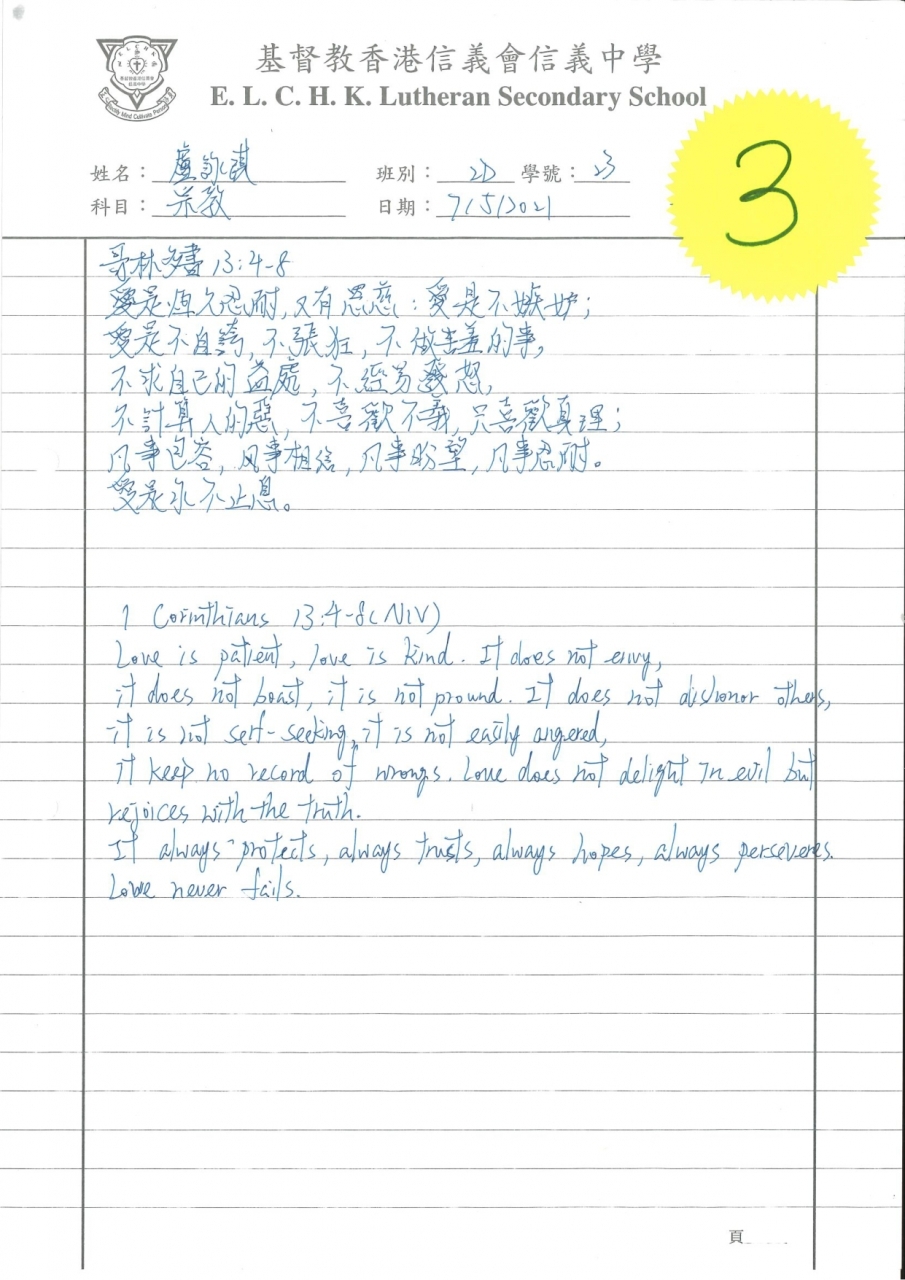 基督教香港信義會信義中學
E. L. C. H. K. Lutheran Secondary School
3
姓名： 盧詠琪 班別： 2D 學號： 23
科目： 宗教 日期： 7/5/2021
哥林多書 13:4-8
愛是恆久忍耐,又有恩慈;愛是不嫉妒;
愛是不自誇,不張狂,不做害羞的事,
不求自己的益處,不經易發怒,
不計算人的惡,不喜歡不義,只喜歡真理;
凡事包容,凡事相信,凡事盼望,凡事忍耐。
愛是永不止息。
1 Corinthians 13:4-8(NIV)
Love is patient, love is kind. It does not envy,
it does not boast, it is not pround. It does not dishonor others,
it is not self-seeking, it is not easily angered,
it keep no record of wrongs. Love does not delight in evil but
rejoices with the truth.
It always protects, always trusts, always hopes, always perseveres.
Love never fails.
頁